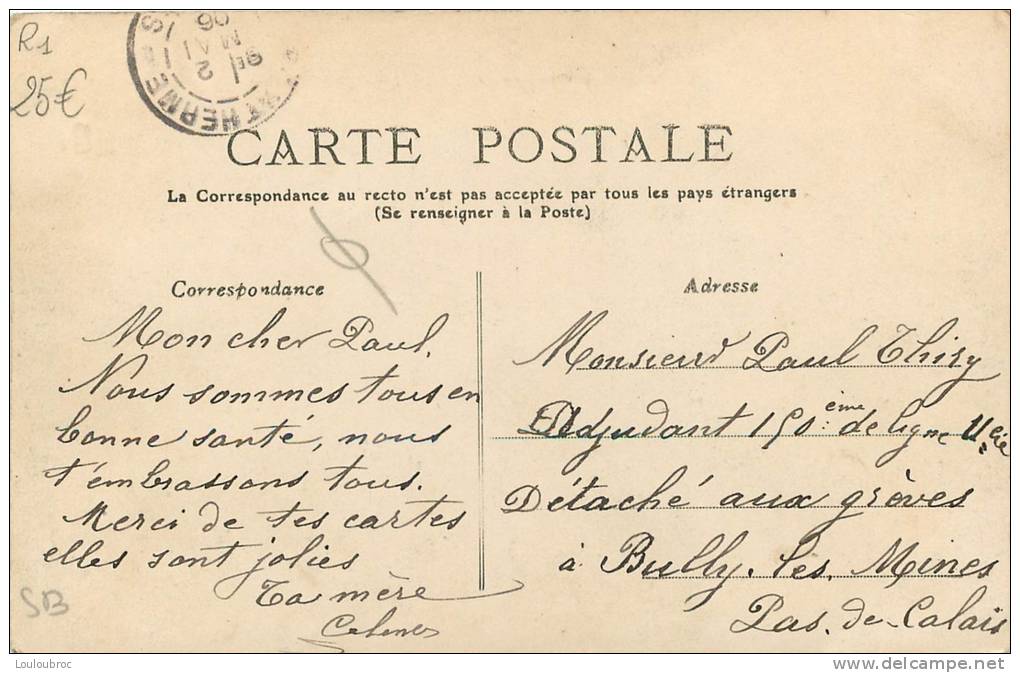 R1
25€
MONTHERMÉ
2
MAI
06
CARTE POSTALE
La Correspondance au recto n'est pas acceptée par tous les pays étrangers
(Se renseigner à la Poste)
Correspondance
Mon cher Paul,
Nous sommes tous en
bonne santé, nous
t'embrassons tous.
Merci de tes cartes
elles sont jolies
Ta mère
Adresse
Monsieur Paul Thiry
Adjudant 150ème de ligne 11e Cie
Détaché aux grèves
à Bully-les-Mines
Pas-de-Calais
SB
Louloubroc
www.delcampe.net